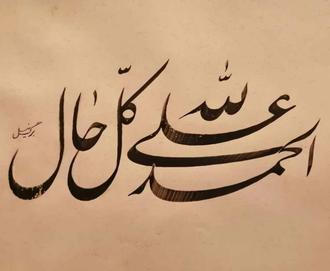 الحمد لله على كلّ حال